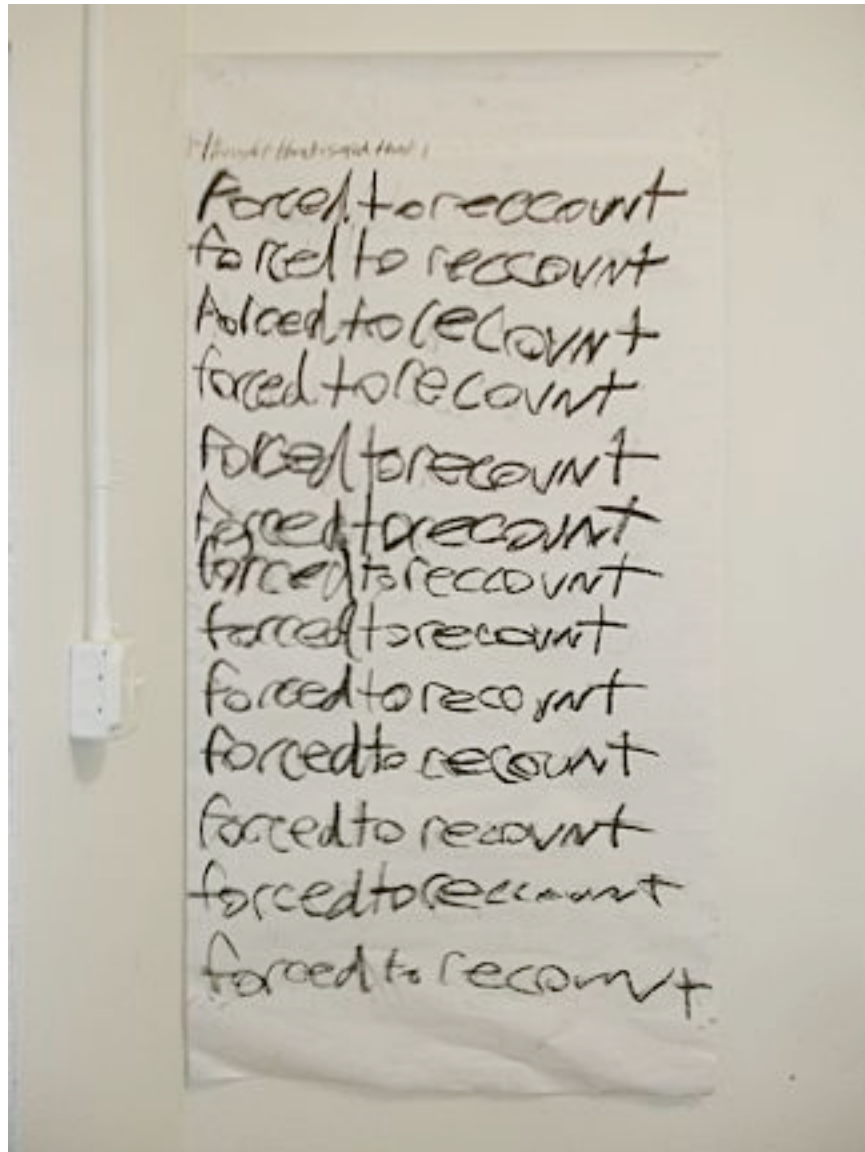 Forced to reccount
forced to reccount
forced to recount
forced to recount
forced to recount
forced to recount
forced to reccount
forced to recount
forced to recount
forced to recount
forced to recount
forced to reccount
forced to recount